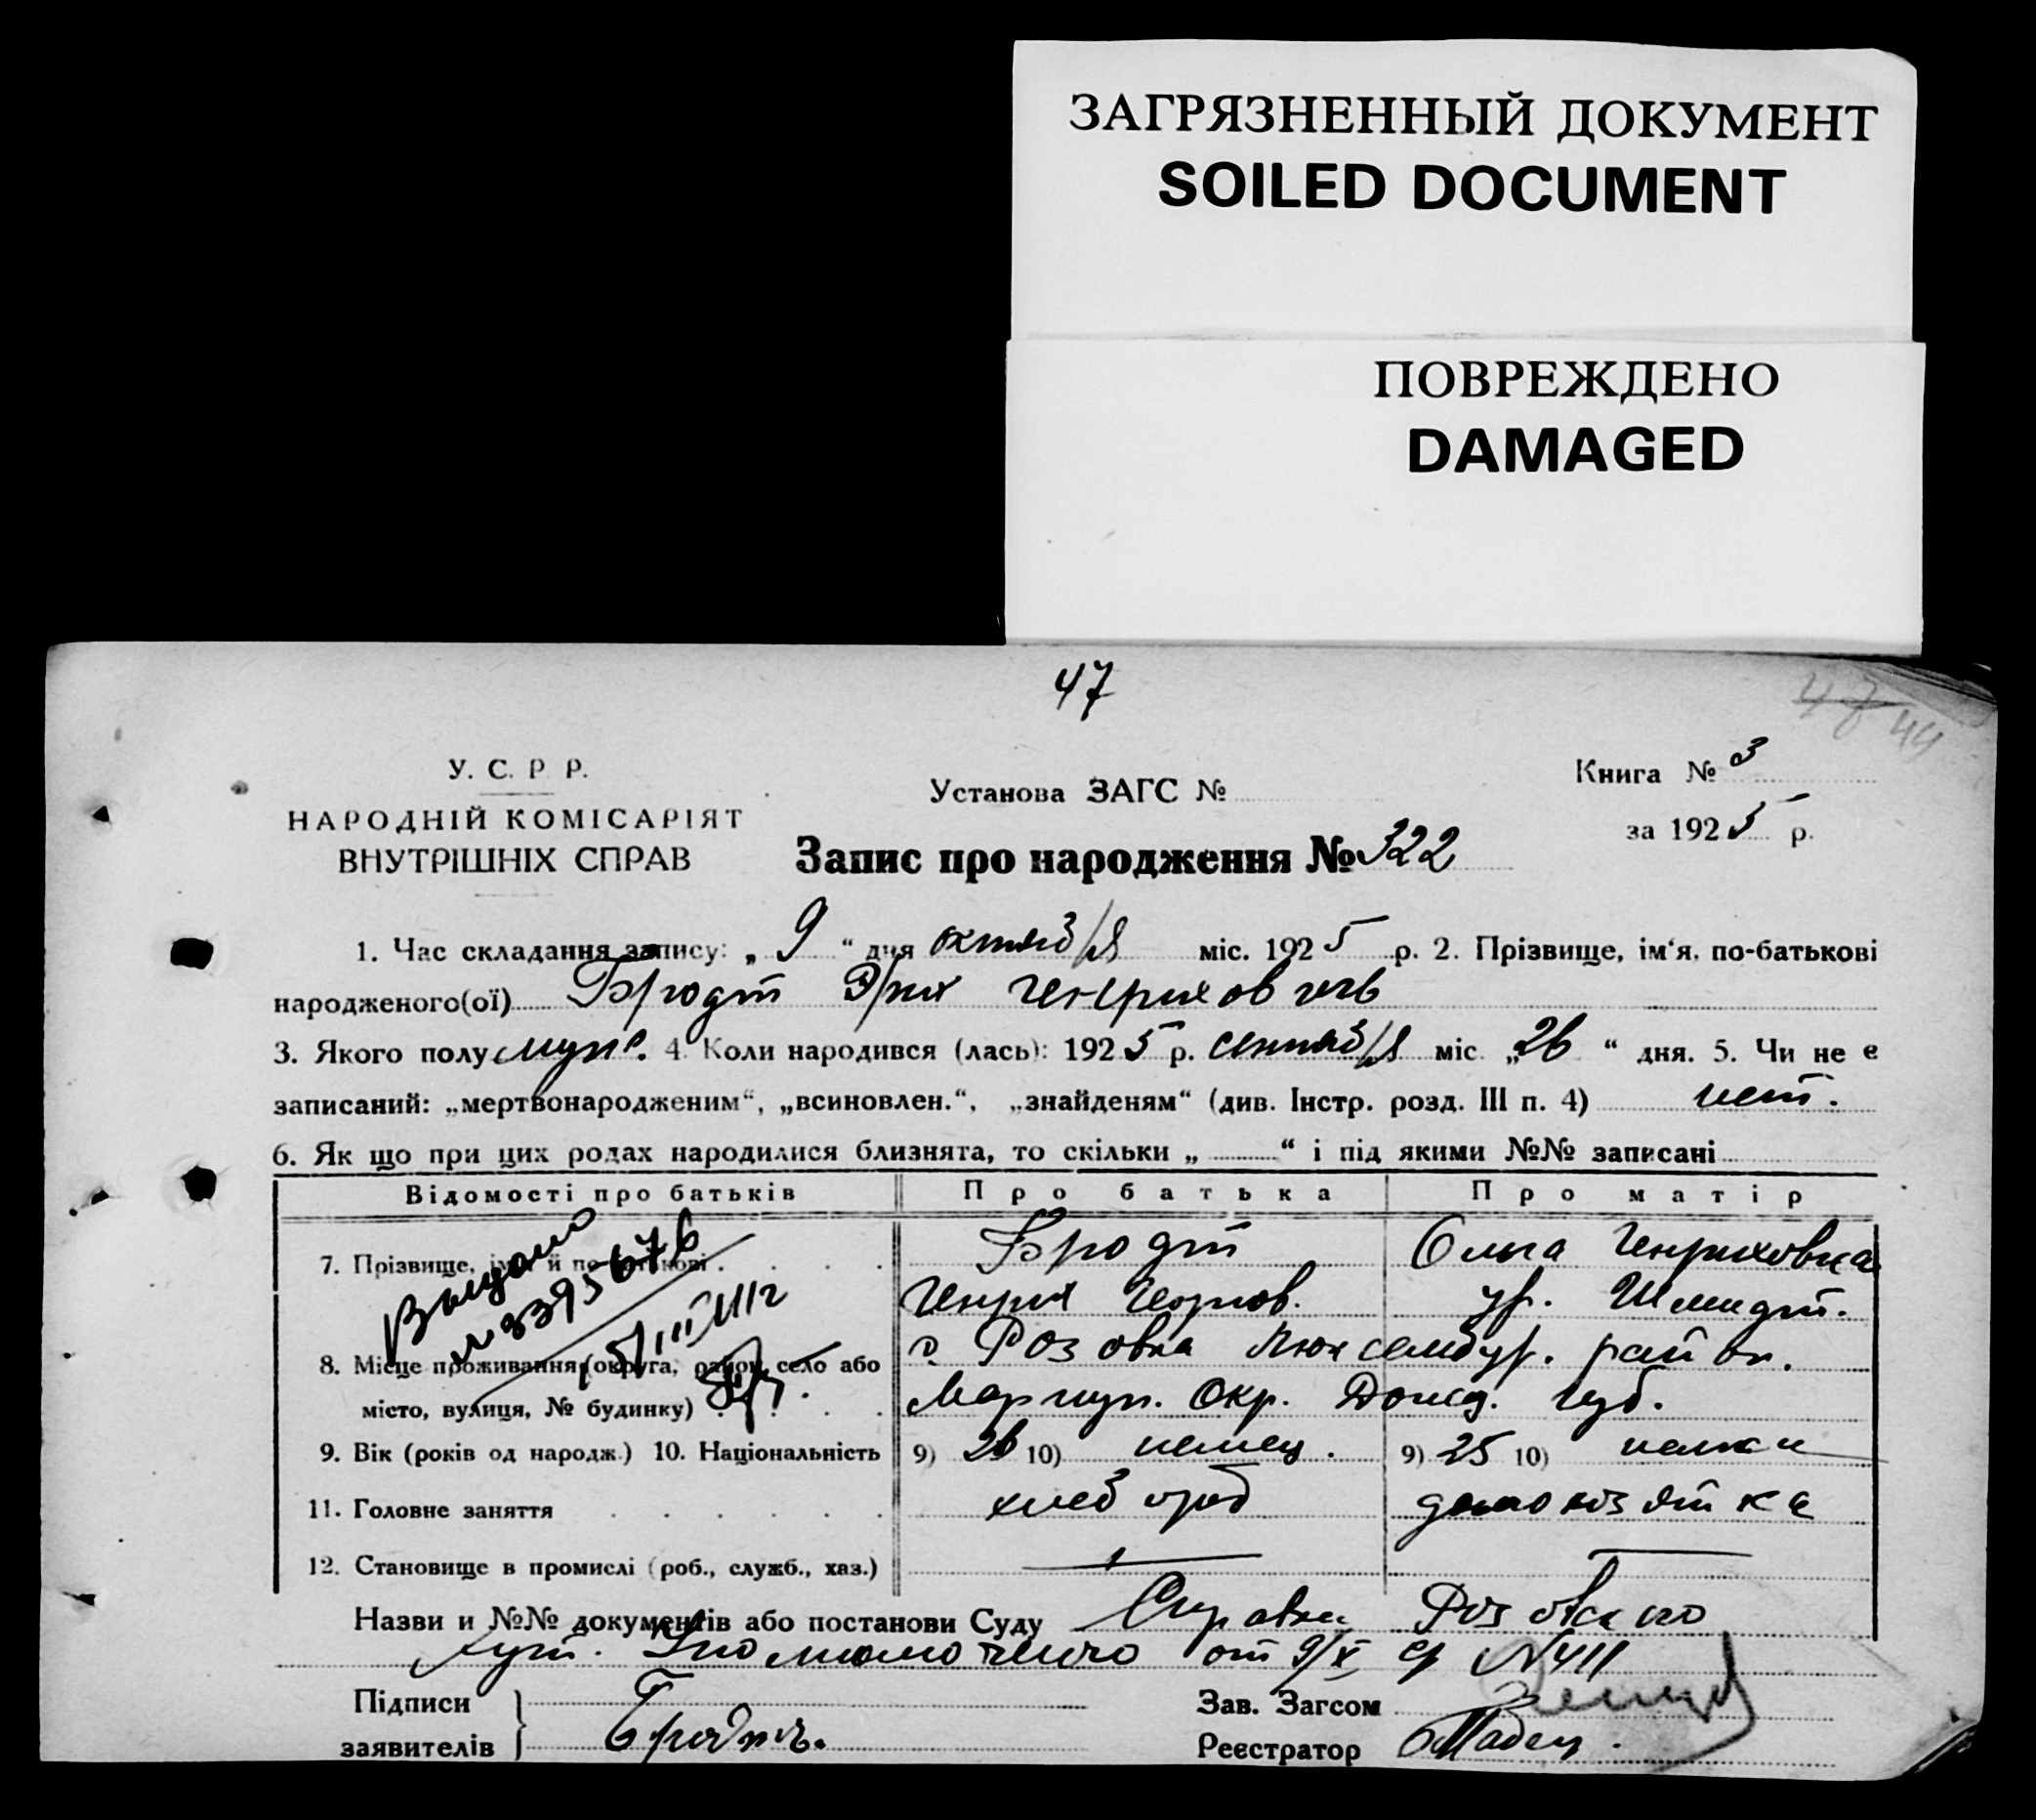 ЗАГРЯЗНЕННЫЙ ДОКУМЕНТ
SOILED DOCUMENT
ПОВРЕЖДЕНО
DAMAGED
47
47 44
У. С. Р Р.
НАРОДНІЙ КОМІСАРІЯТ
ВНУТРІШНІХ СПРАВ
Установа ЗАГС №
Книга № 3
за 1925 р.
Запис про народження № 322
1. Час складання запису: „ 9 “ дня октяб/я міс. 1925 р. 2. Прізвище, ім‘я, по-батькові
народженого(ої) Бродт Эрих Генрихович
3. Якого полу муж. 4. Коли народився (лась): 1925 р. сентяб/я міс „26 “ дня. 5. Чи не є
записаний: „мертвонародженим“, „всиновлен.“, „знайденям“ (див. Інстр. розд. III п. 4) нет.
6. Як що при цих родах народилися близнята, то скільки „ “ і під якими №№ записані
Відомості про батьків Про батька Про матір
7. Прізвище, ім'я й по батькові Бродт Ольга Генриховна
Генрих Георгов. ур. Шмидт.
Выдано
№ 3395676
8. Місце проживання (округа, район, село або с. Розовка Люксембур. район.
місто, вулиця, № будинку) Мариуп. Окр. Донец. губ.
9. Вік (років од народж.) 10. Національність 9) 26 10) немец. 9) 25 10) немка
11. Головне заняття хлебороб домохозяйка
12. Становище в промислі (роб., служб., хаз.)
Назви и №№ документів або постанови Суду Справка Розовского
хут. Уполномоченого от 9/X с/г №411
Підписи
заявителів Бродтъ.
Зав. Загсом
Реєстратор